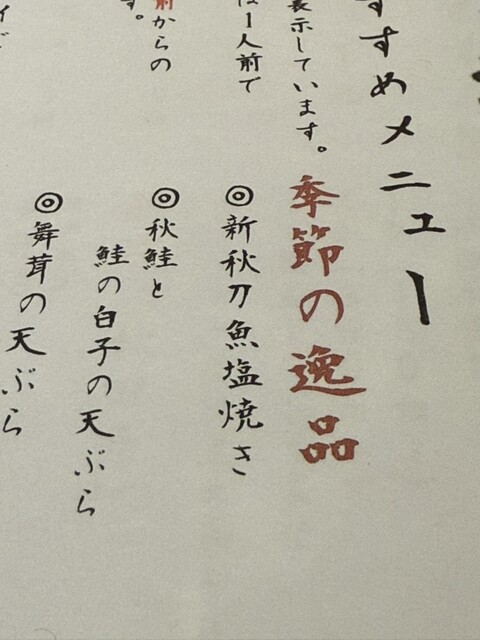 すすめメニュー
表示しています。
季節の逸品
は1人前で
◎新秋刀魚塩焼き
前からの
◎秋鮭と
鮭の白子の天ぷら
す。
◎舞茸の天ぷら